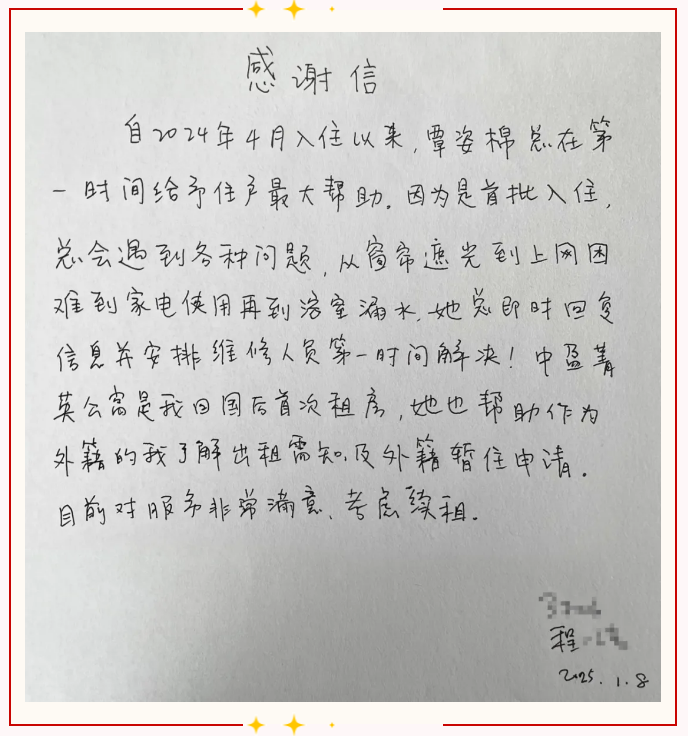 感谢信
自2024年4月入住以来，覃姿棉总在第
一时间给予住户最大帮助。因为是首批入住，
总会遇到各种问题，从窗帘遮光到上网困
难到家电使用再到浴室漏水，她总即时回复
信息并安排维修人员第一时间解决！中盈菁
英公寓是我回国后首次租房，她也帮助作为
外籍的我了解出租需知及外籍暂住申请。
目前对服务非常满意，考虑续租。
程
2025.1.8